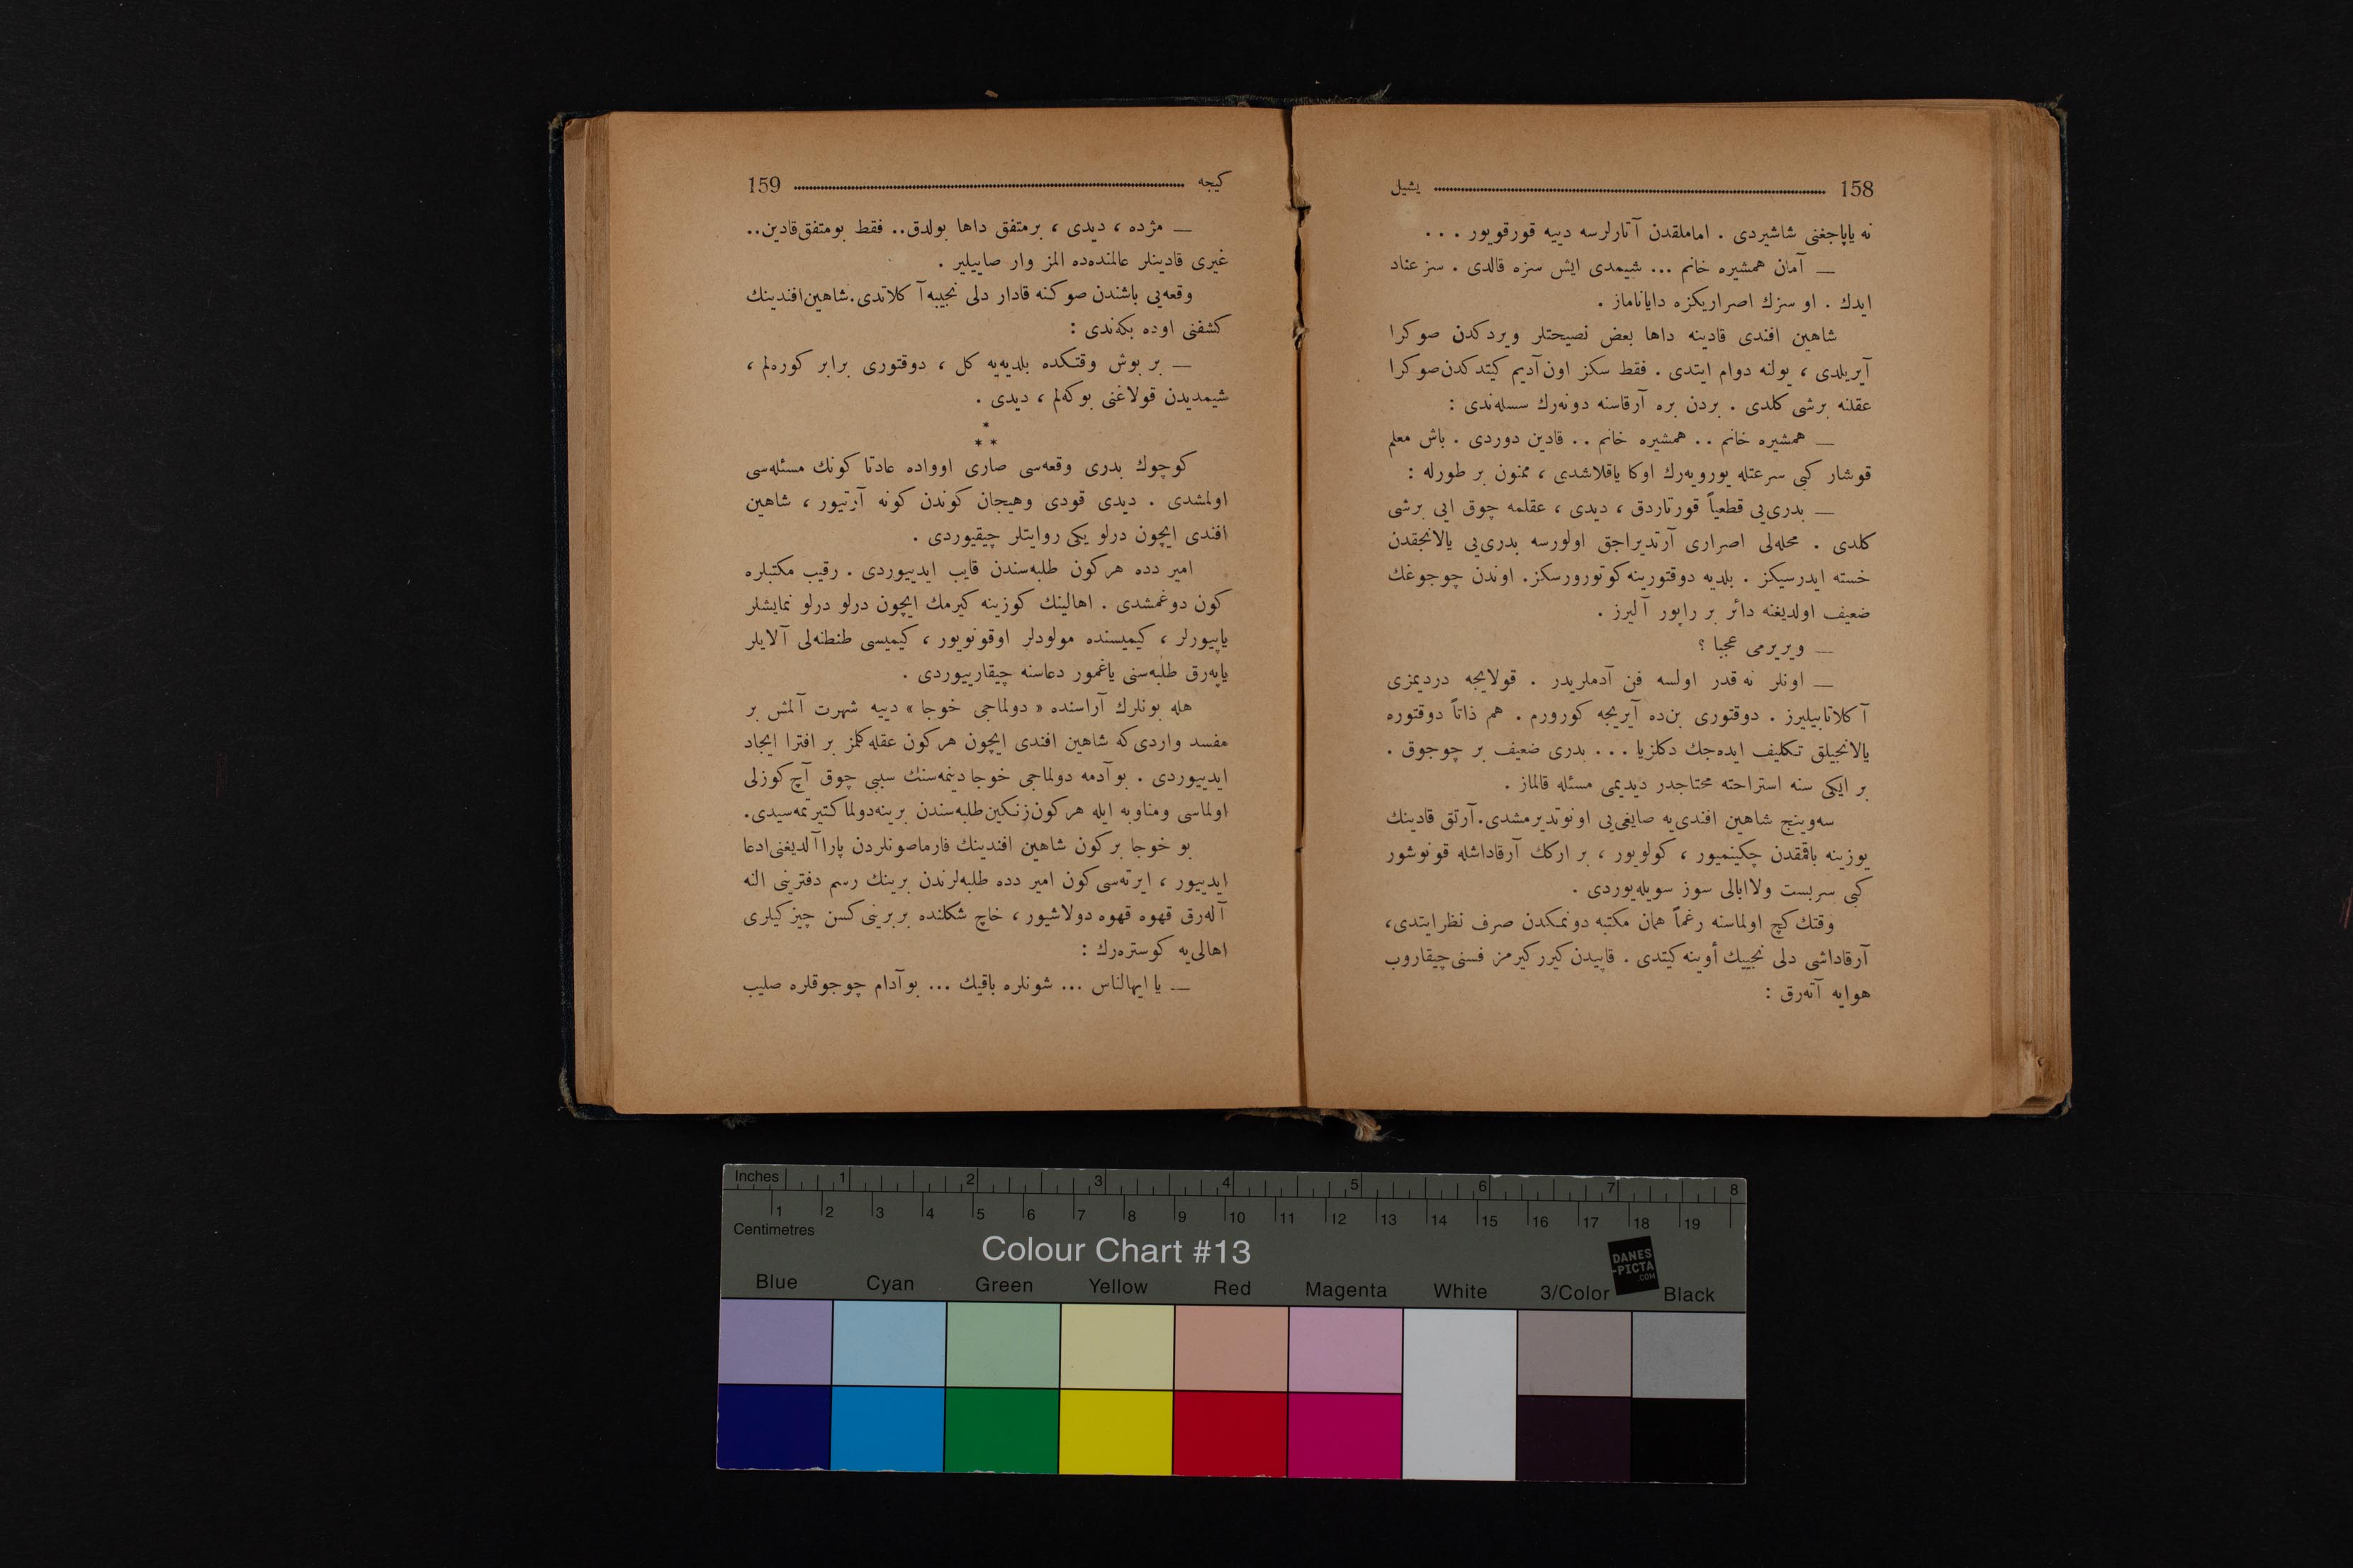 158 يشيل
نه ياپاجغنی شاشيردی . اماملقدن آتارلرسه دييه قورقويور . . .
— آمان همشيره خانم ... شيمدی ايش سزه قالدی . سز عناد
ايدك . او سزك اصراريكزه داياناماز .
شاهين افندی قادينه داها بعض نصيحتلر ويردكدن صوكرا
آيريلدی ، يولنه دوام ايتدی . فقط سكز اون آديم كيتدكدن صوكرا
عقلنه برشی كلدی . بردن بره آرقاسنه دونه‌رك سسله‌ندی :
— همشيره خانم .. همشيره خانم .. قادين دوردی . باش معلم
قوشار كبی سرعتله يورويه‌رك اوكا ياقلاشدی ، ممنون بر طورله :
— بدری‌يی قطعياً قورتاردق ، ديدی ، عقلمه چوق ايی برشی
كلدی . محله‌لی اصراری آرتديراجق اولورسه بدری‌يی يالانجقدن
خسته ايدرسيكز . بلديه دوقتورينه كوتورورسكز. اوندن چوجوغك
ضعيف اولديغنه دائر بر راپور آليرز .
— ويريرمی عجبا ؟
— اونلر نه قدر اولسه فن آدملريدر . قولايجه درديمزی
آكلاتابيليرز . دوقتوری بن‌ده آيريجه كورورم . هم ذاتاً دوقتوره
يالانجيلق تكليف ايده‌جك دكلزيا . . . بدری ضعيف بر چوجوق .
بر ايكی سنه استراحته محتاجدر ديديمی مسئله قالماز .
سه‌وينج شاهين افندی‌يه صايغی‌يی اونوتديرمشدی. آرتق قادينك
يوزينه باقمقدن چكينميور ، كولويور ، بر اركك آرقاداشله قونوشور
كبی سربست ولاابالی سوز سويله‌يوردی .
وقتك كچ اولماسنه رغماً همان مكتبه دونمكدن صرف نظر ايتدی،
آرقاداشی دلی نجيبك أوينه كيتدی . قاپيدن كيرر كيرمز فسنی چيقاروب
هوايه آته‌رق :
كيجه 159
— مژده ، ديدی ، برمتفق داها بولدق.. فقط بومتفق قادين..
غيری قادينلر عالمنده‌ده المز وار صاييلير .
وقعه‌يی باشندن صوكنه قادار دلی نجيبه آكلاتدی. شاهين افندينك
كشفنی اوده بكه‌ندی :
— بر بوش وقتكده بلديه‌يه كل ، دوقتوری برابر كوره‌لم ،
شيمديدن قولاغنی بوكه‌لم ، ديدی .
* * *
كوچوك بدری وقعه‌سی صاری اوواده عادتا كونك مسئله‌سی
اولمشدی . ديدی قودی وهيجان كوندن كونه آرتيور ، شاهين
افندی ايچون درلو يكی روايتلر چيقيوردی .
امير دده هر كون طلبه‌سندن قايب ايدييوردی . رقيب مكتبلره
كون دوغمشدی . اهالينك كوزينه كيرمك ايچون درلو درلو نمايشلر
ياپيورلر ، كيميسنده مولودلر اوقونويور ، كيميسی طنطنه‌لی آلايلر
ياپه‌رق طلبه‌سنی ياغمور دعاسنه چيقارييوردی .
هله بونلرك آراسنده « دولماجی خوجا » دييه شهرت آلمش بر
مفسد واردی‌كه شاهين افندی ايچون هر كون عقله كلمز بر افترا ايجاد
ايدييوردی . بو آدمه دولماجی خوجا دينمه‌سنك سببی چوق آچ كوزلی
اولماسی ومناوبه ايله هر كون زنكين طلبه‌سندن برينه دولما كتيرتمه‌سيدی.
بو خوجا بر كون شاهين افندينك فارماصونلردن پارا آلديغنی ادعا
ايدييور ، ايرته‌سی كون امير دده طلبه‌لرندن برينك رسم دفترينی النه
آله‌رق قهوه قهوه دولاشيور ، خاچ شكلنده بربرينی كسن چيزكيلری
اهالی‌يه كوستره‌رك :
— يا ايهالناس ... شونلره باقيك ... بو آدام چوجوقلره صليب
Inches 1 2 3 4 5 6 7 8
1 2 3 4 5 6 7 8 9 10 11 12 13 14 15 16 17 18 19
Centimetres
Colour Chart #13
DANES
-PICTA
.COM
Blue Cyan Green Yellow Red Magenta White 3/Color Black